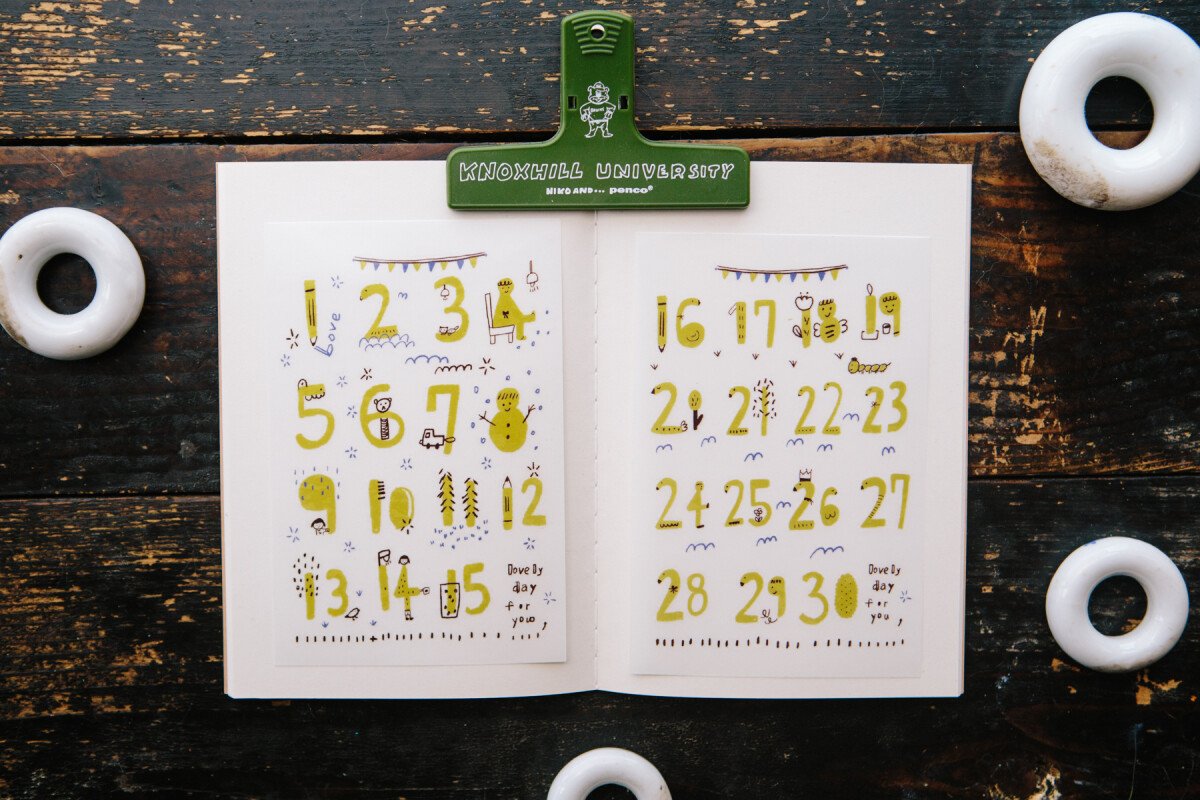 KNOXHILL UNIVERSITY
NIKO AND... penco®
1 2 3 4
love
5 6 7 8
9 10 11 12
13 14 15
lovely
day
for
you,
16 17 18 19
20 21 22 23
24 25 26 27
28 29 30
lovely
day
for
you,